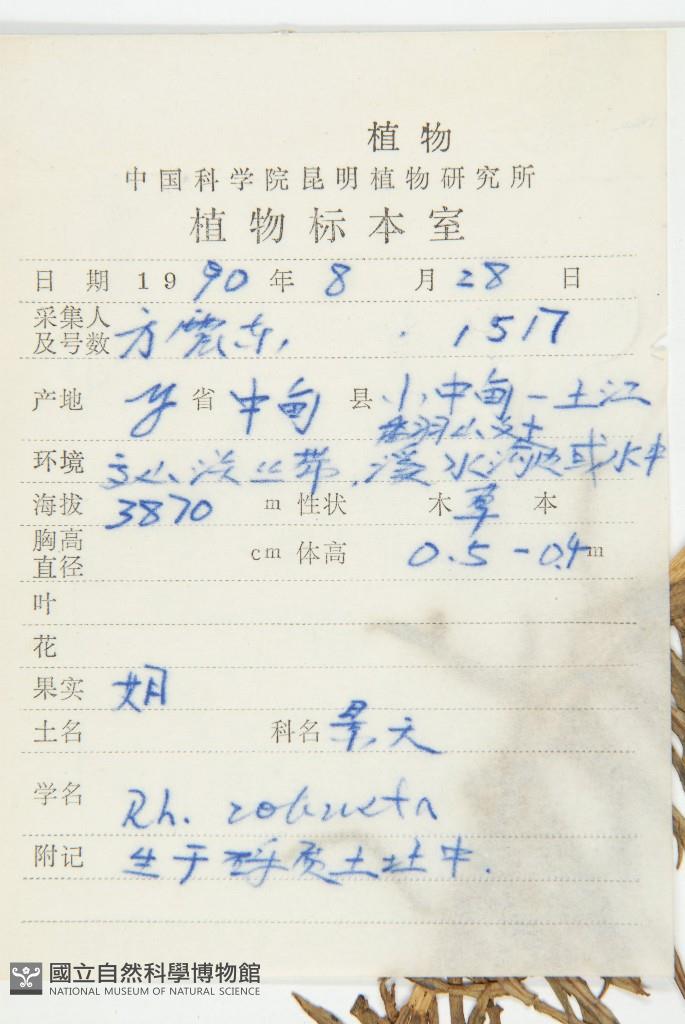 植物
中国科学院昆明植物研究所
植物标本室
日期 1990年8月28日
采集人及号数 方震东, 1517
产地 省 中甸 县 小中甸-土江
环境 高山 带, 水沟边或水中
海拔 3870 m 性状 木 草 本
胸高直径 cm 体高 0.5-0.4m
叶
花
果实 明
土名 科名 景天
学名 Rh. robusta
附记 生于 质土壮中.
國立自然科學博物館
NATIONAL MUSEUM OF NATURAL SCIENCE